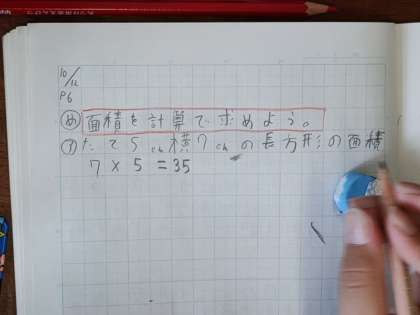 10/12
P6
め 面積を計算で求めよう。
ア たて5cm横7cmの長方形の面積
7×5=35